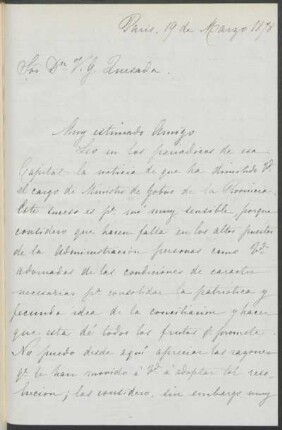 Paris, 19 de Marzo 1878
Sor Dn V. G. Quesada.
Muy estimado Amigo
Leo en los periodicos de esa
Capital la noticia de que ha dimitido Vd.
el cargo de Ministro de Gobno de la Provincia.
Este suceso es pa mi muy sensible, porque
considero que hacen falta en los altos puestos
de la Administracion personas como Vd.
adornadas de las condiciones de caracter
necesarias pa consolidar la patriótica y
fecunda idea de la conciliacion y hacer
que esta dé todos los frutos q. promete.
No puedo desde aquí apreciar las razones
q. le han movido á Vd. á adoptar tal reso
lucion; las considero, sin embargo, muy